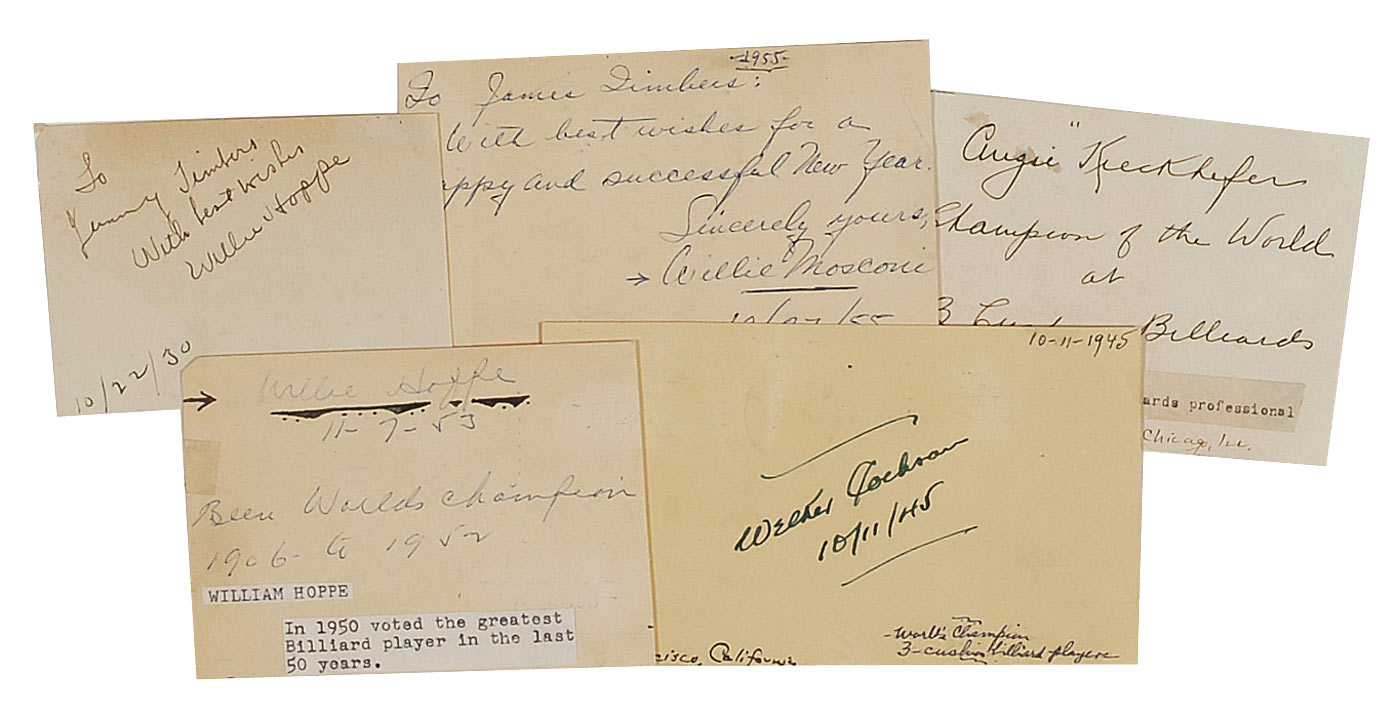 To
Jimmy Timbers
With best wishes
Willie Hoppe
10/22/30
-1955-
To James Timbers:
With best wishes for a
ppy and successful New Year.
Sincerely yours,
→ Willie Mosconi
Augie "Kieckhefer
Champion of the World
at
3 Billiards
ards professional
Chicago, Ill.
→ Willie Hoppe
11-7-53
Been Worlds champion
1906- to 1952
WILLIAM HOPPE
In 1950 voted the greatest
Billiard player in the last
50 years.
10-11-1945
Welker Cochran
10/11/45
-World's Champion
3-cushion billiard-players
cisco, California